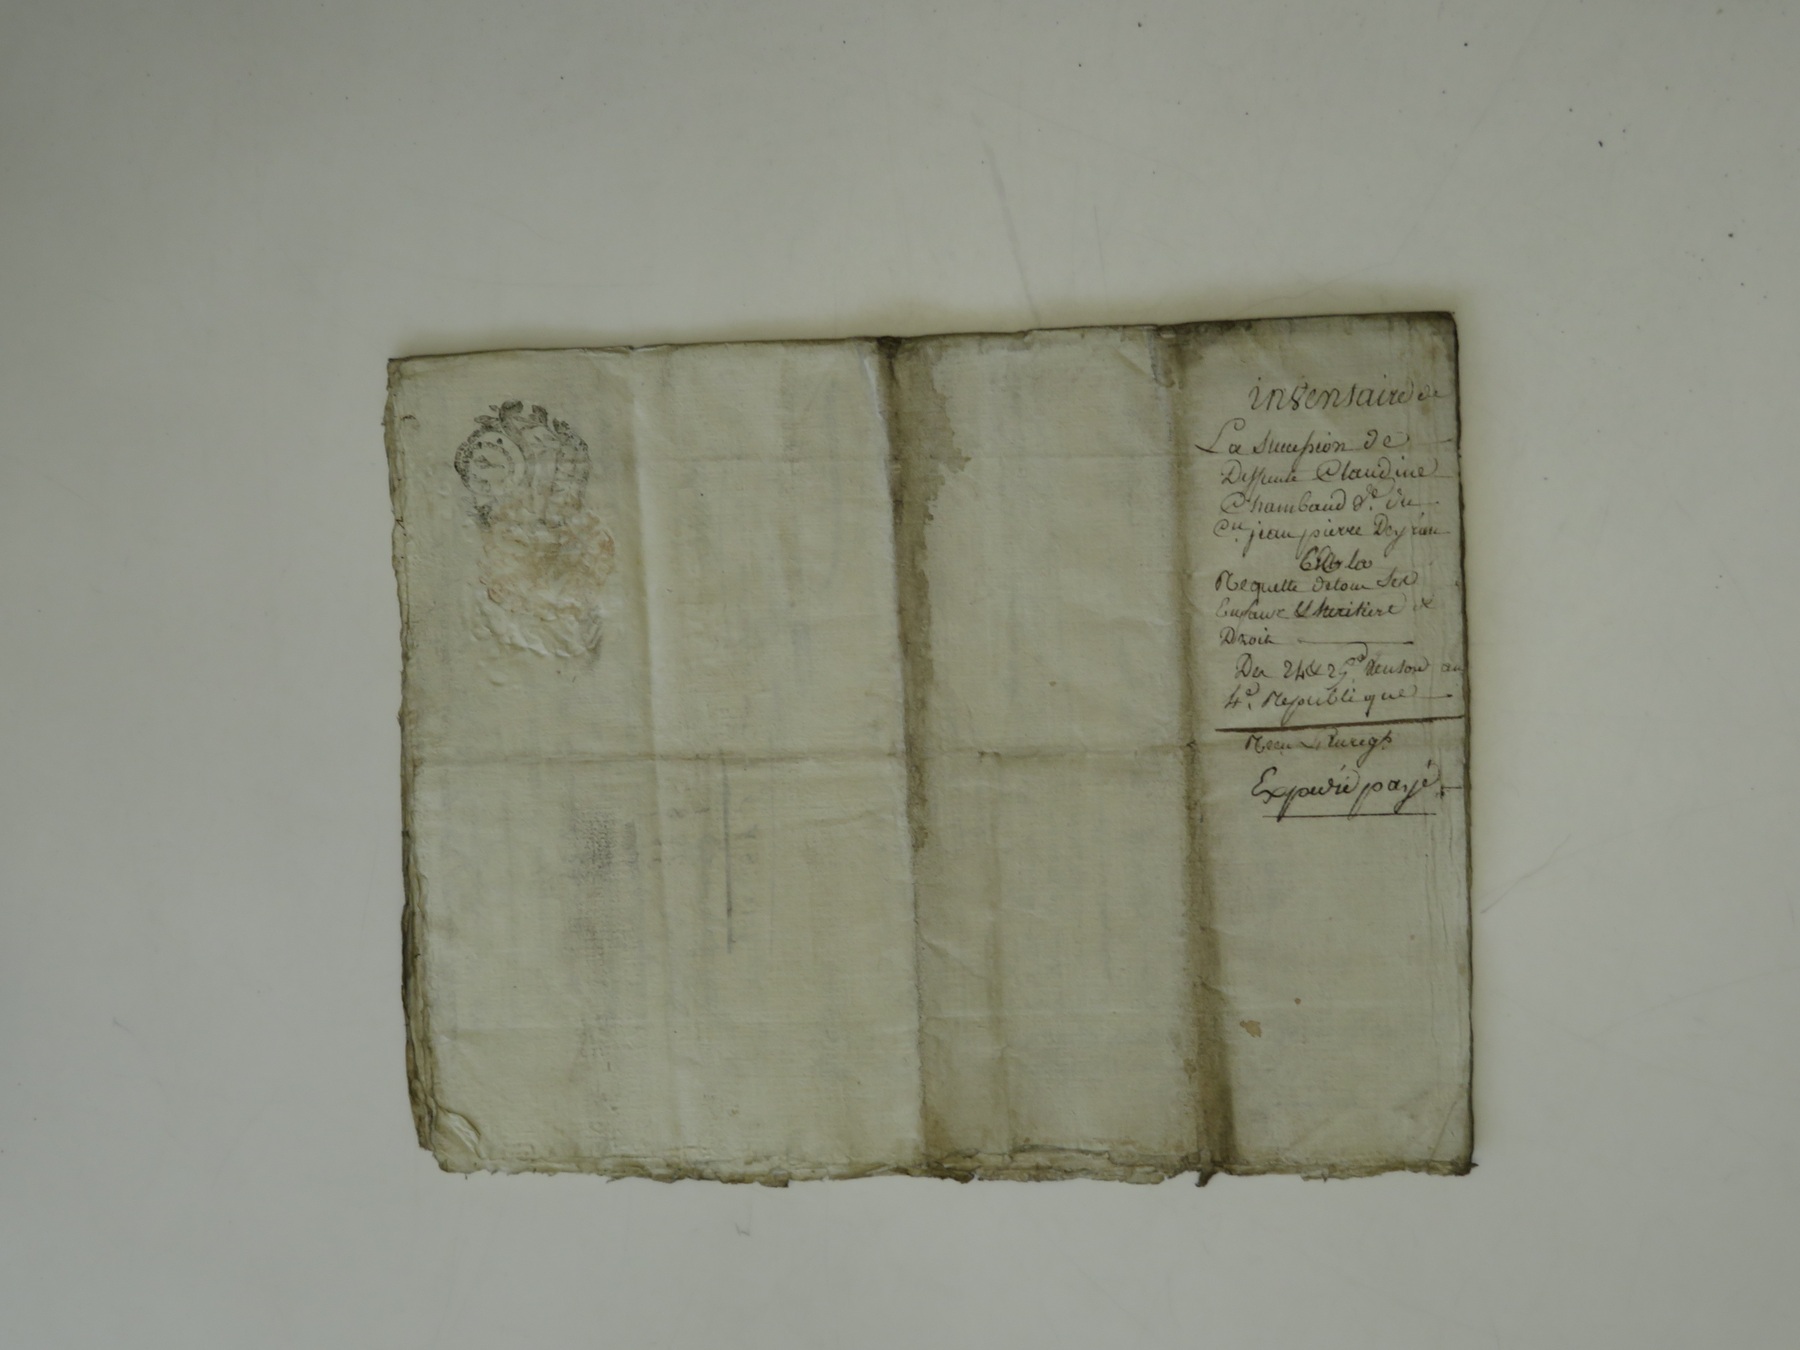 inventaire de
La succession de
Deffunte Claudine
Chambaud Ve. du
Cn. jean pierre Deyrieu
la
Requette de tous ses
Enfans & heritiers de
Droit
Du 24 & 25e. ventose an
4e. Republique
Expedié payé